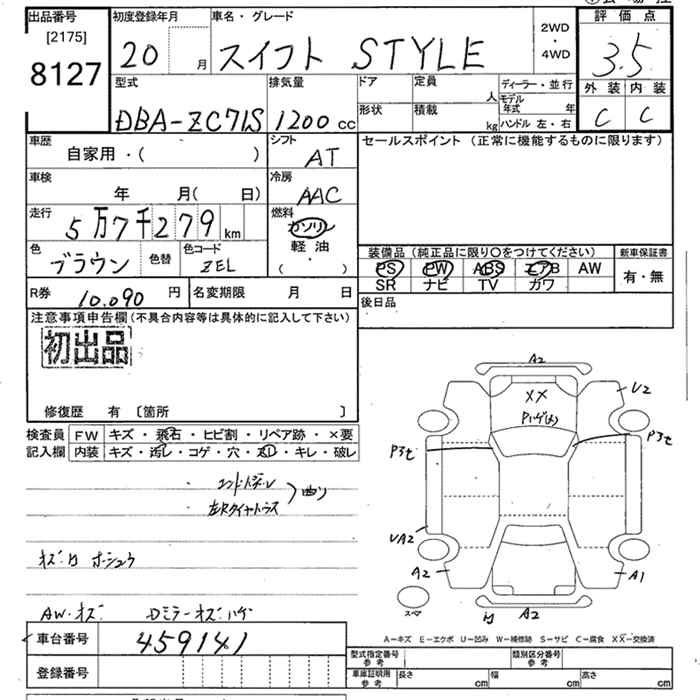 出品番号
[2175]
8127
初度登録年月
20 月
車名・グレード
スイフト STYLE
2WD
4WD
評価点
3.5
外装 内装
C C
型式
DBA-ZC71S
排気量
1200 cc
ドア
定員 人
形状
積載 kg
ディーラー・並行
モデル年式 年
ハンドル 左・右
車歴
自家用・( )
シフト
AT
セールスポイント (正常に機能するものに限ります)
車検
年 月( 日)
冷房
AAC
走行
5万7千279km
燃料
ガソリン
軽油
・
( )
色
ブラウン
色替
色コード
ZEL
装備品 (純正品に限り○をつけてください)
新車保証書
PS PW ABS エアB AW
有・無
SR ナビ TV カワ
R券 10.090 円
名変期限 月 日
後日品
注意事項申告欄 (不具合内容等は具体的に記入して下さい)
初出品
修復歴 有 〔箇所 〕
検査員 FW キズ・飛石・ヒビ割・リペア跡・×要
記入欄 内装 キズ・汚レ・コゲ・穴・スレ・キレ・破レ
曲り
AW・キズ
車台番号 459141
登録番号
A2
XX
U2
P3セ
P3セ
UA2
A2
A1
A2
スペア
A-キズ E-エクボ U-凹み W-補修跡 S-サビ C-腐食 XX-交換済
型式指定番号 参考
類別区分番号 参考
車庫証明用 参考
長さ cm
幅 cm
高さ cm